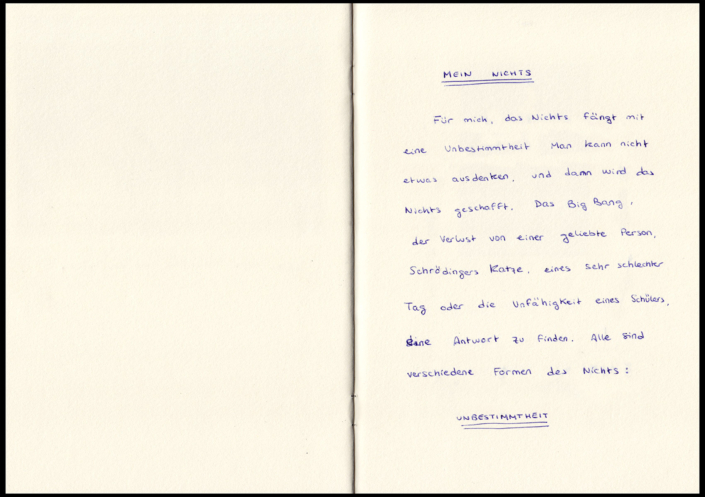 MEIN NICHTS
Für mich, das Nichts fängt mit
eine Unbestimmtheit Man kann nicht
etwas ausdenken, und dann wird das
Nichts geschafft. Das Big Bang,
der Verlust von einer geliebte Person,
Schrödingers Katze, eines sehr schlechter
Tag oder die Unfähigkeit eines Schülers,
eine Antwort zu finden. Alle sind
verschiedene Formen des Nichts:
UNBESTIMMTHEIT